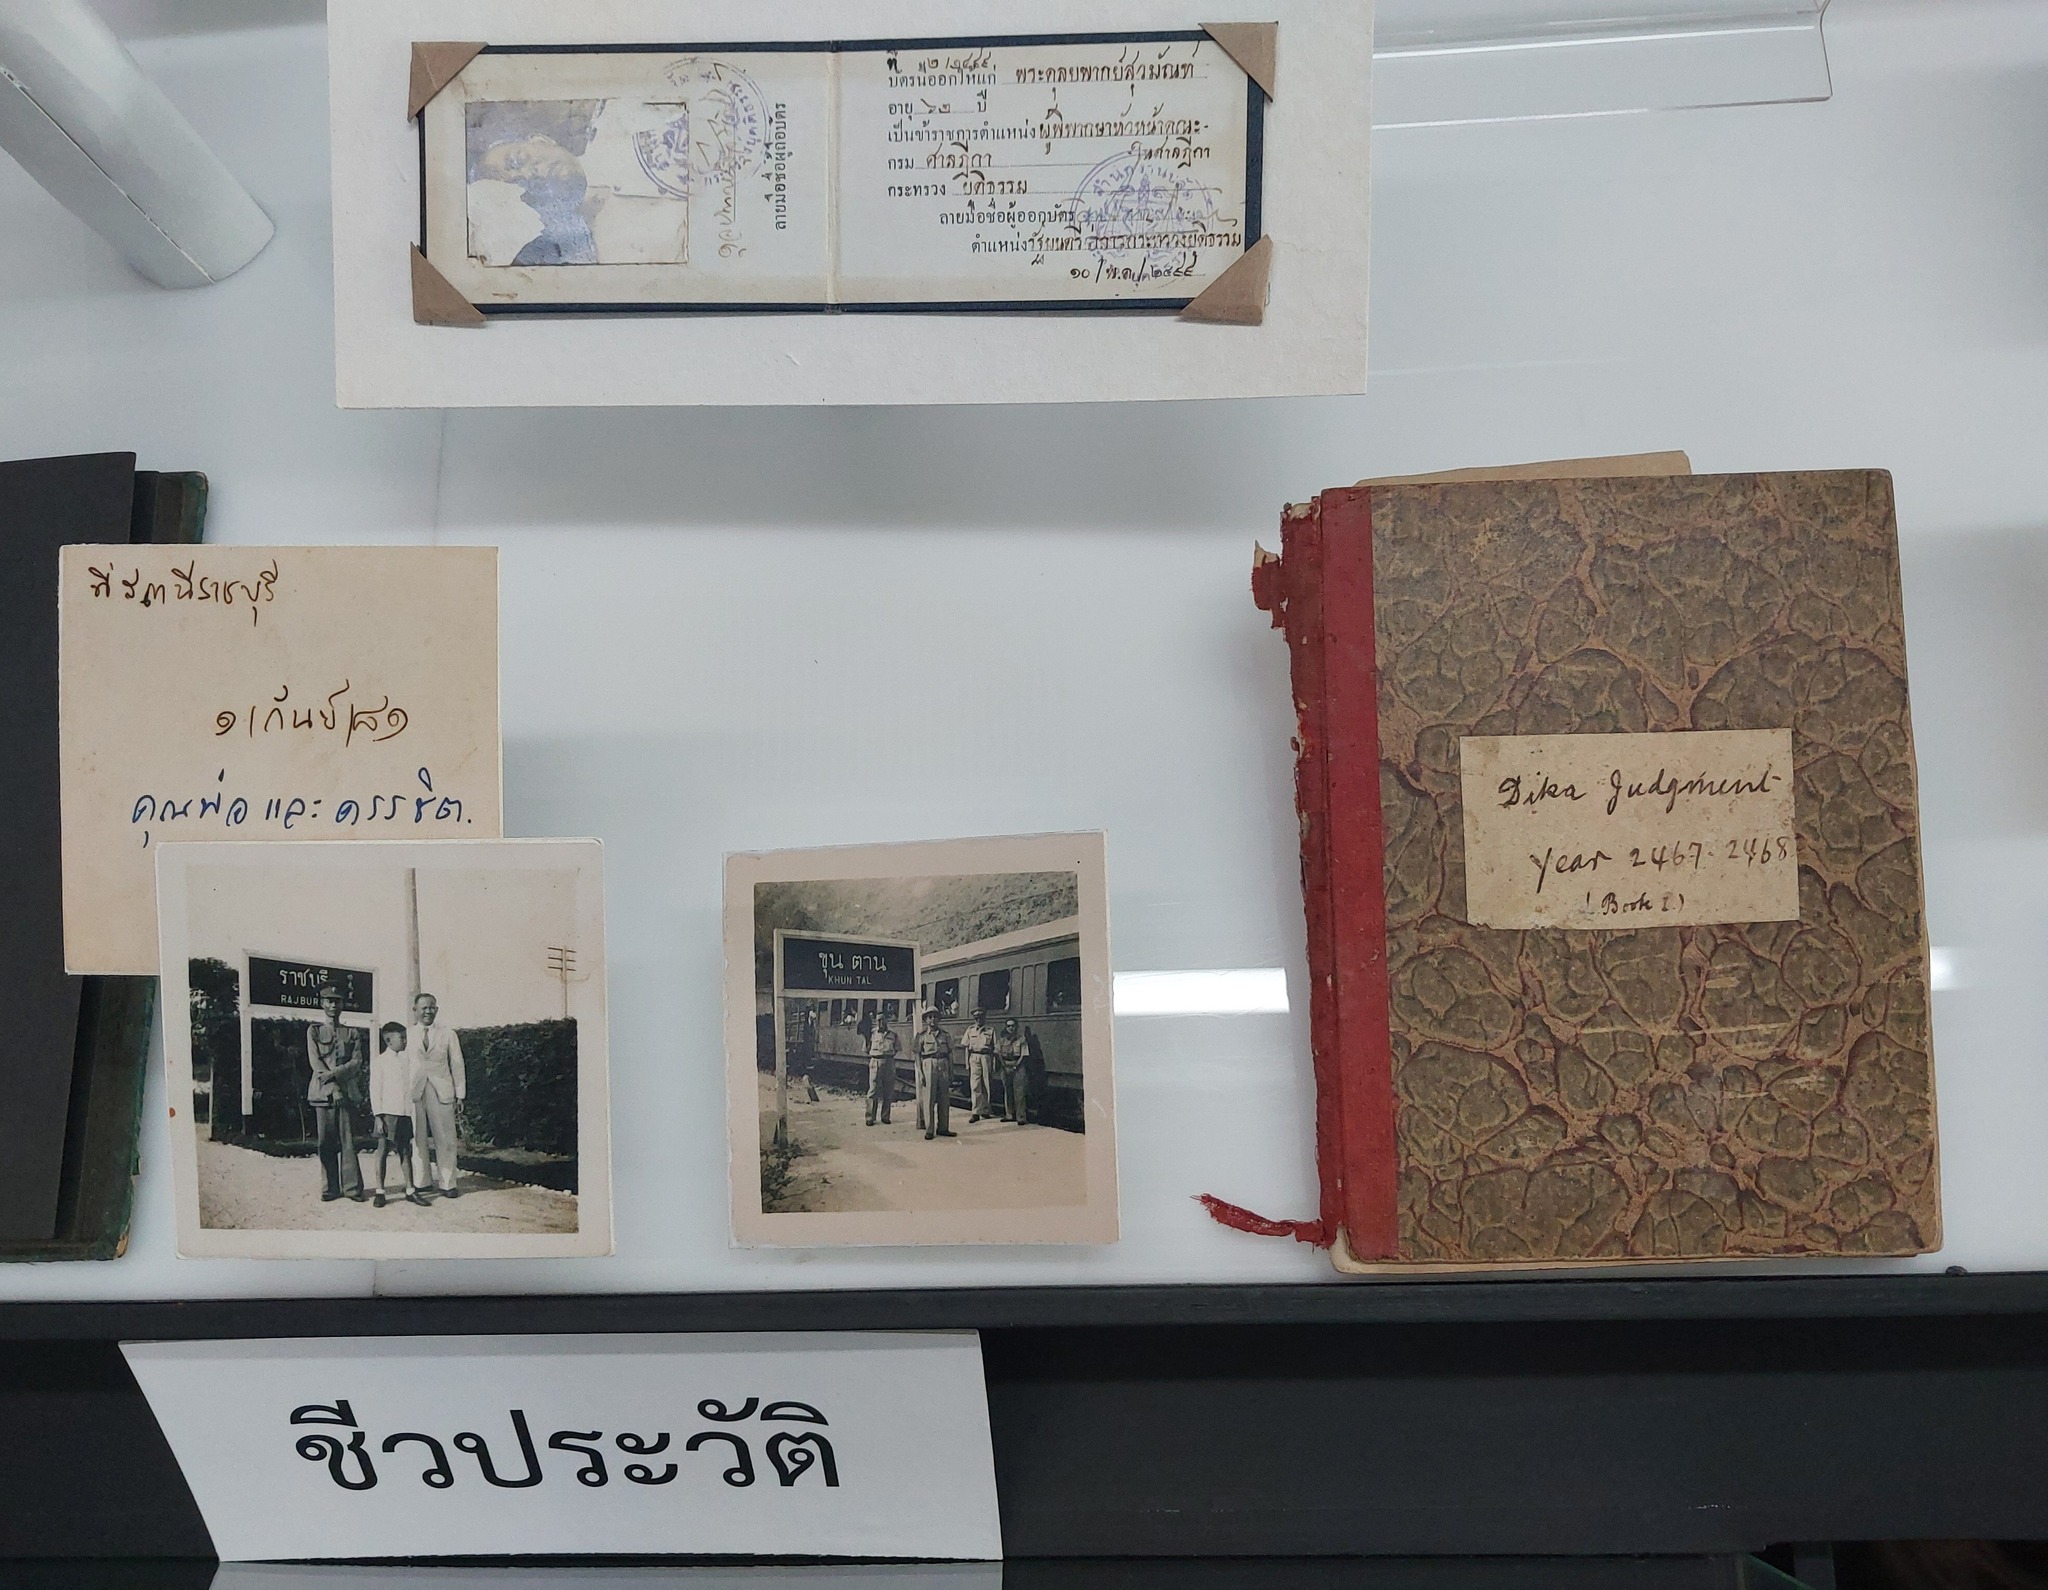 ที่ ๒/๒๔๙๙
บัตรนี้ออกให้แก่ พระดุลยพากย์สุวมัณฑ์
อายุ ๖๒ ปี
เป็นข้าราชการตำแหน่ง ผู้พิพากษาหัวหน้าคณะ-
ในศาลฎีกา
กรม ศาลฎีกา
กระทรวง ยุติธรรม
ลายมือชื่อผู้ออกบัตร
ตำแหน่ง รัฐมนตรีว่าการกระทรวงยุติธรรม
๑๐/พ.ค./๒๔๙๙
ลายมือชื่อผู้ถือบัตร
ที่สถานีราชบุรี
๑/กันย์/๘๑
คุณพ่อ และ ดรรชิต.
ราชบุรี
RAJBURI
ขุน ตาน
KHUN TAL
Dika Judgment
Year 2467-2468
(Book I)
ชีวประวัติ